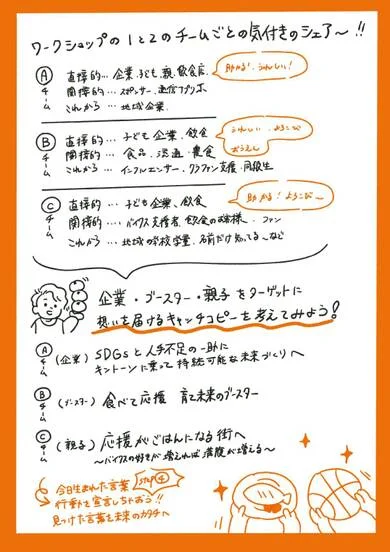 ワークショップの1と2のチームごとの気付きのシェア〜!!
Aチーム
直接的… 企業、子ども、親、飲食店
助かる!、うれしい!
間接的… スポンサー、
これから… 地域企業
Bチーム
直接的… 子ども、企業、飲食
うれしい、よろこび
おうえん
間接的… 食品、流通、農食
これから… インフルエンサー、クラファン支援、同級生
Cチーム
直接的… 子ども、企業、飲食
助かる!よろこび〜
間接的… バイクス支援者、飲食のお客様、ファン
これから… 地域の学校学童、名前だけ知ってる〜など
企業・ブースター・親子をターゲットに
想いを届けるキャッチコピーを考えてみよう!
Aチーム
(企業) SDGsと人手不足の一助に
キントーンに乗って持続可能な未来づくりへ
Bチーム
(ブースター) 食べて応援 育て未来のブースター
Cチーム
(親子) 応援がごはんになる街へ
〜バイクスの好きが増えれば満腹が増える〜
今日生まれた言葉 STEP④
行動を宣言しちゃおう!!
見つけた言葉を未来のカタチへ